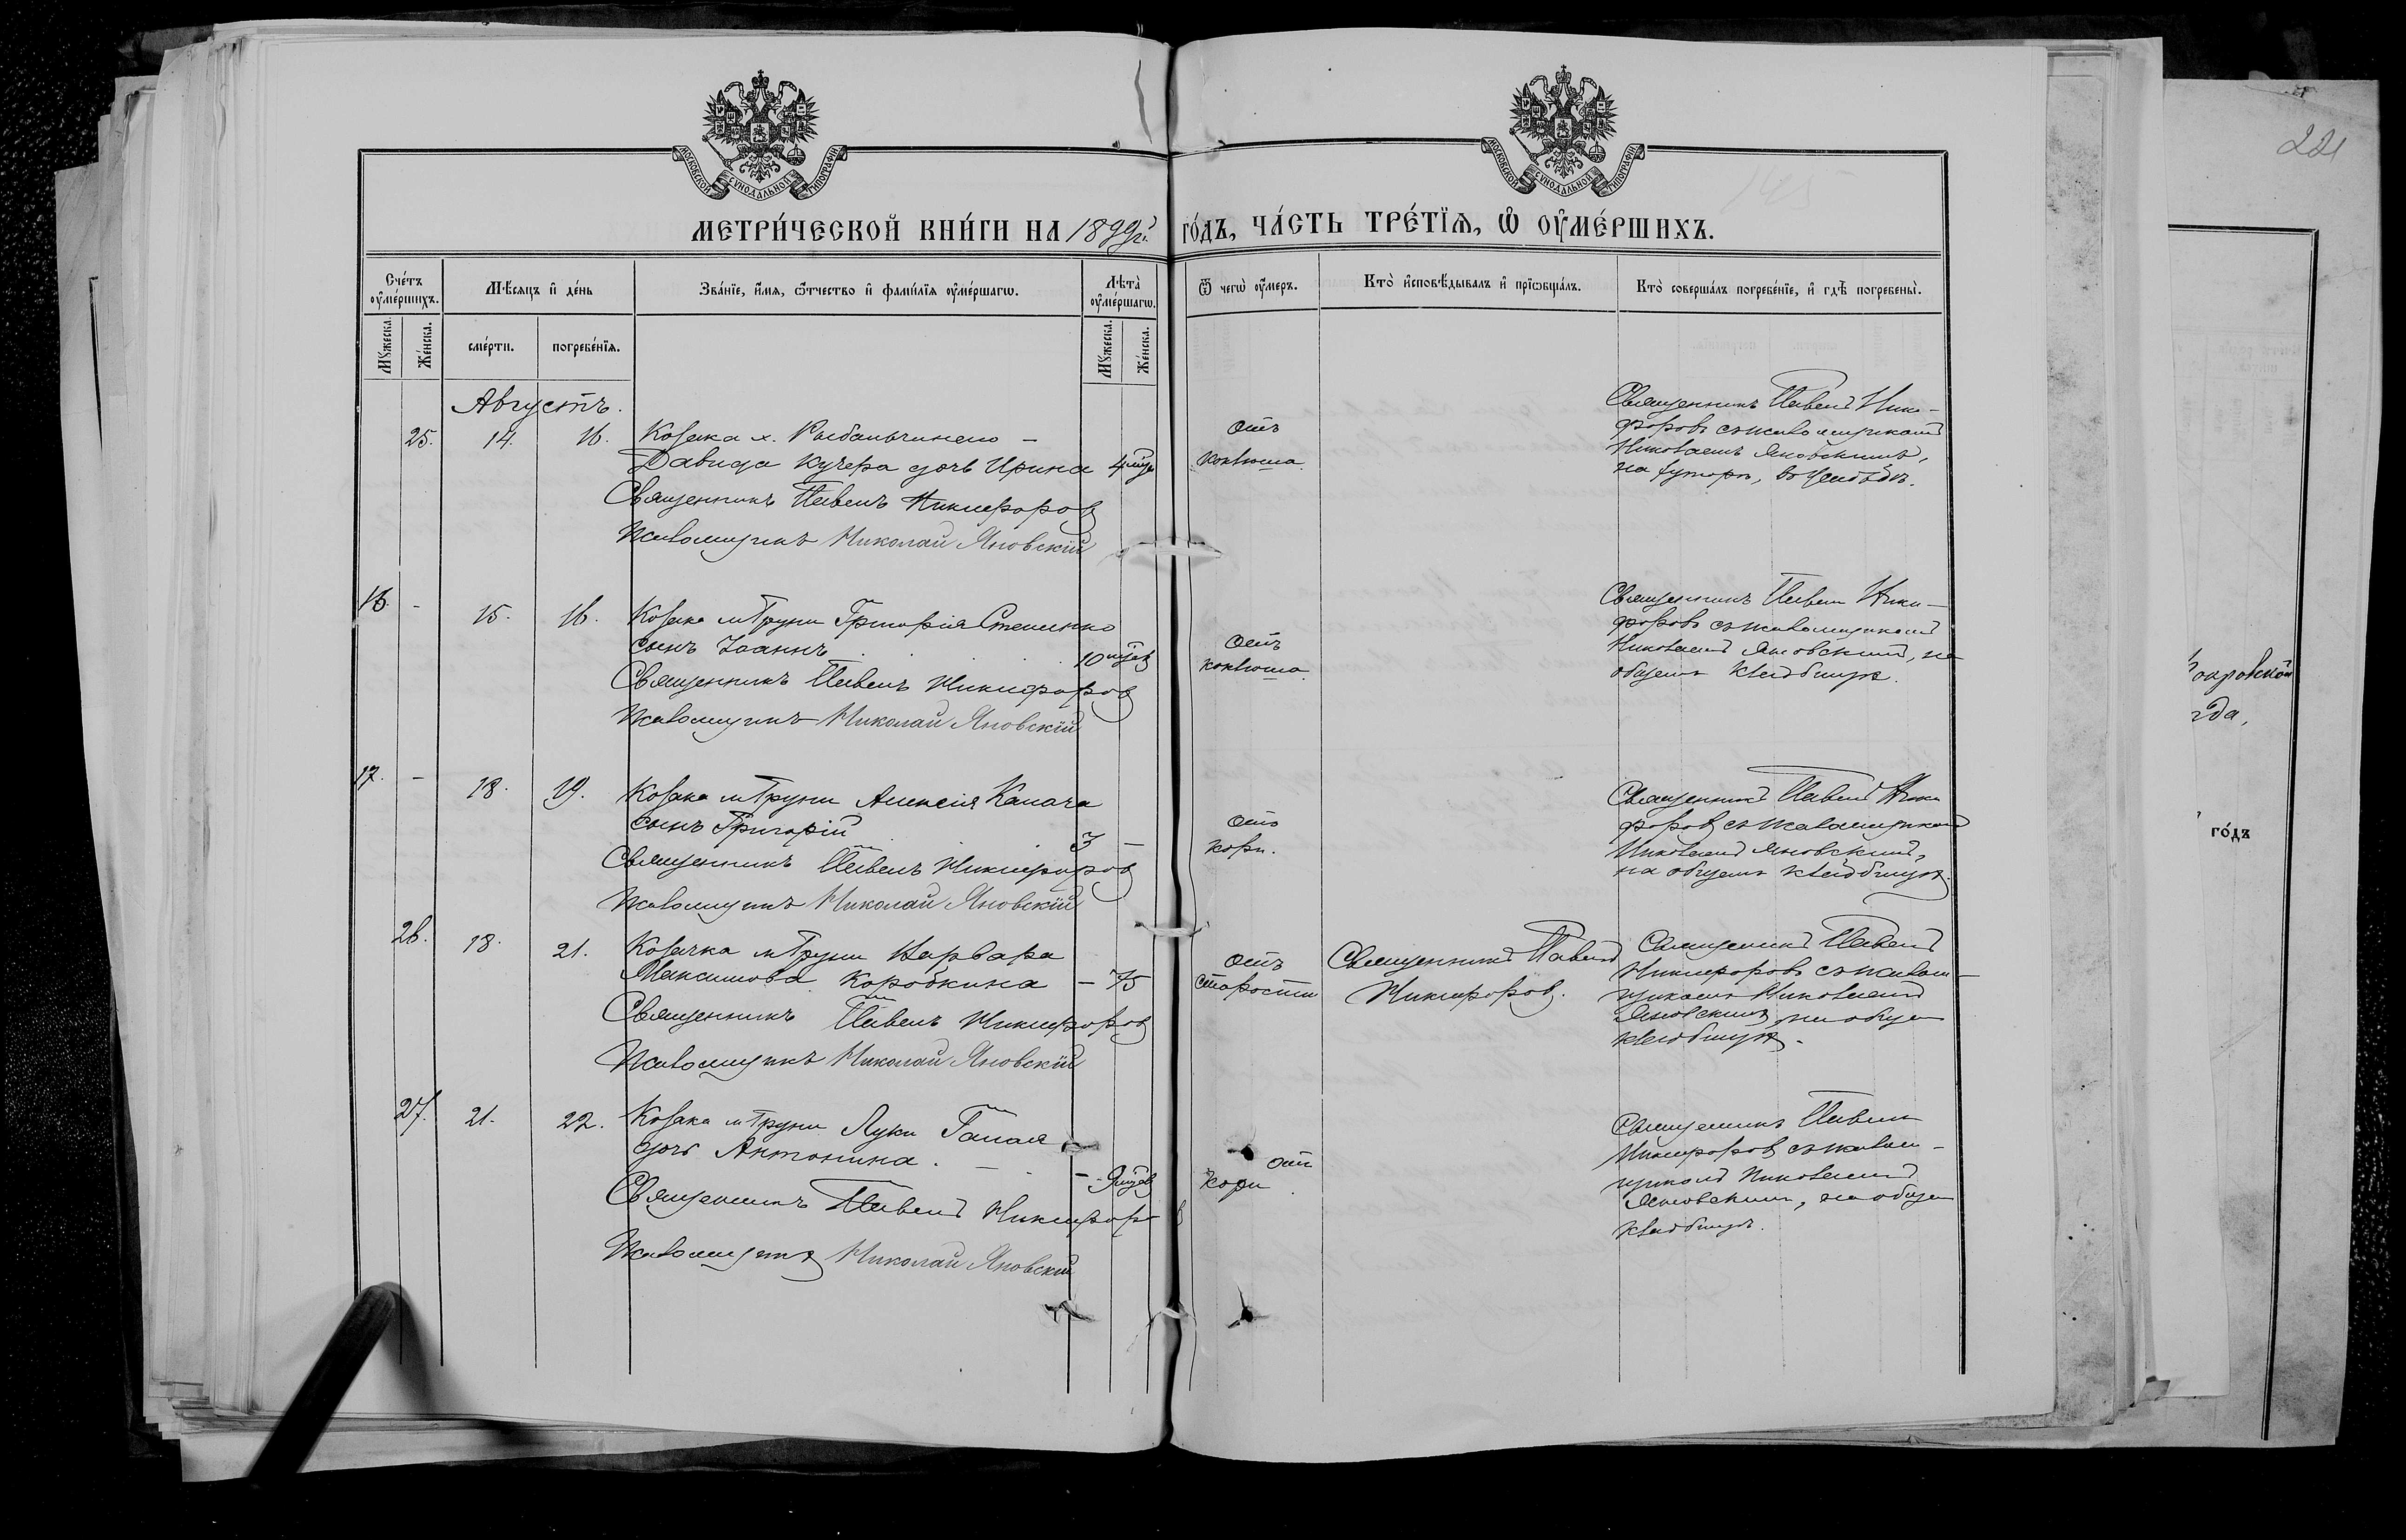 МОСКОВСКОЙ СѴНОДАЛЬНОЙ ТИПОГРАФІИ
МОСКОВСКОЙ СѴНОДАЛЬНОЙ ТИПОГРАФІИ
221
МЕТРИ́ЧЕСКОЙ КНИ́ГИ НА 1899й го́дъ, ЧА́СТЬ ТРЕ́ТЇѦ, Ѽ ОУ҆МЕ́РШИХЪ.
Сче́тъ оу҆ме́ршихъ.
Мꙋ́жеска.
Же́нска.
Мѣ́сяцъ и҆ де́нь
сме́рти.
погребе́нїѧ.
Зва́нїе, и҆́мѧ, ѻ҆́тчество и҆ фами́лїѧ оу҆ме́ршагѡ.
Лѣта̀ оу҆ме́ршагѡ.
Мꙋ́жеска.
Же́нска.
Ѿ чегѡ̀ оу҆́меръ.
Кто̀ и҆сповѣ́дывалъ и҆ прїѡбща́лъ.
Кто̀ соверша́лъ погребе́нїе, и҆ гдѣ̀ погребены̀.
Августъ.
25. 14. 16. Козака х.
Давида Кучера дочь Ирина 4 мѣс
Священникъ Павелъ Никифоровъ
Псаломщикъ Николай Яновскій
отъ
коклюша
Священникъ Павелъ Ники-
форовъ съ псаломщикомъ
Николаемъ Яновскимъ,
на хуторѣ,
16. - 15. 16. Козака м Груни Григорія
сынъ Іоаннъ 10 мѣсяц
Священникъ Павелъ Никифоровъ
Псаломщикъ Николай Яновскій
отъ
коклюша
Священникъ Павелъ Ники-
форовъ съ псаломщикомъ
Николаемъ Яновскимъ, на
общемъ кладбищѣ.
17. - 18. 19. Козака м Груни Алексія Капача
сынъ Григорій 3 -
Священникъ Павелъ Никифоровъ
Псаломщикъ Николай Яновскій
отъ
кори.
Священникъ Павелъ Ники
форовъ съ псаломщикомъ
Николаемъ Яновскимъ,
на общемъ кладбищѣ.
26. 18. 21. Козачка м Груни Варвара
Максимова Коробкина - 75
Священникъ Павелъ Никифоровъ
Псаломщикъ Николай Яновскій
отъ
старости
Священникъ Павелъ
Никифоровъ.
Священникъ Павелъ
Никифоровъ съ псалом-
щикомъ Николаемъ
Яновскимъ на общем
кладбищѣ.
27. 21. 22. Козака м Груни Луки Гапая
дочь Антонина. - 9 мѣсяц
Священникъ Павелъ Никифоровъ
Псаломщикъ Николай Яновскій
отъ
кори
Священникъ Павелъ
Никифоровъ съ псалом-
щикомъ Николаемъ
Яновскимъ, на общем
кладбищѣ.
года,
го́дъ